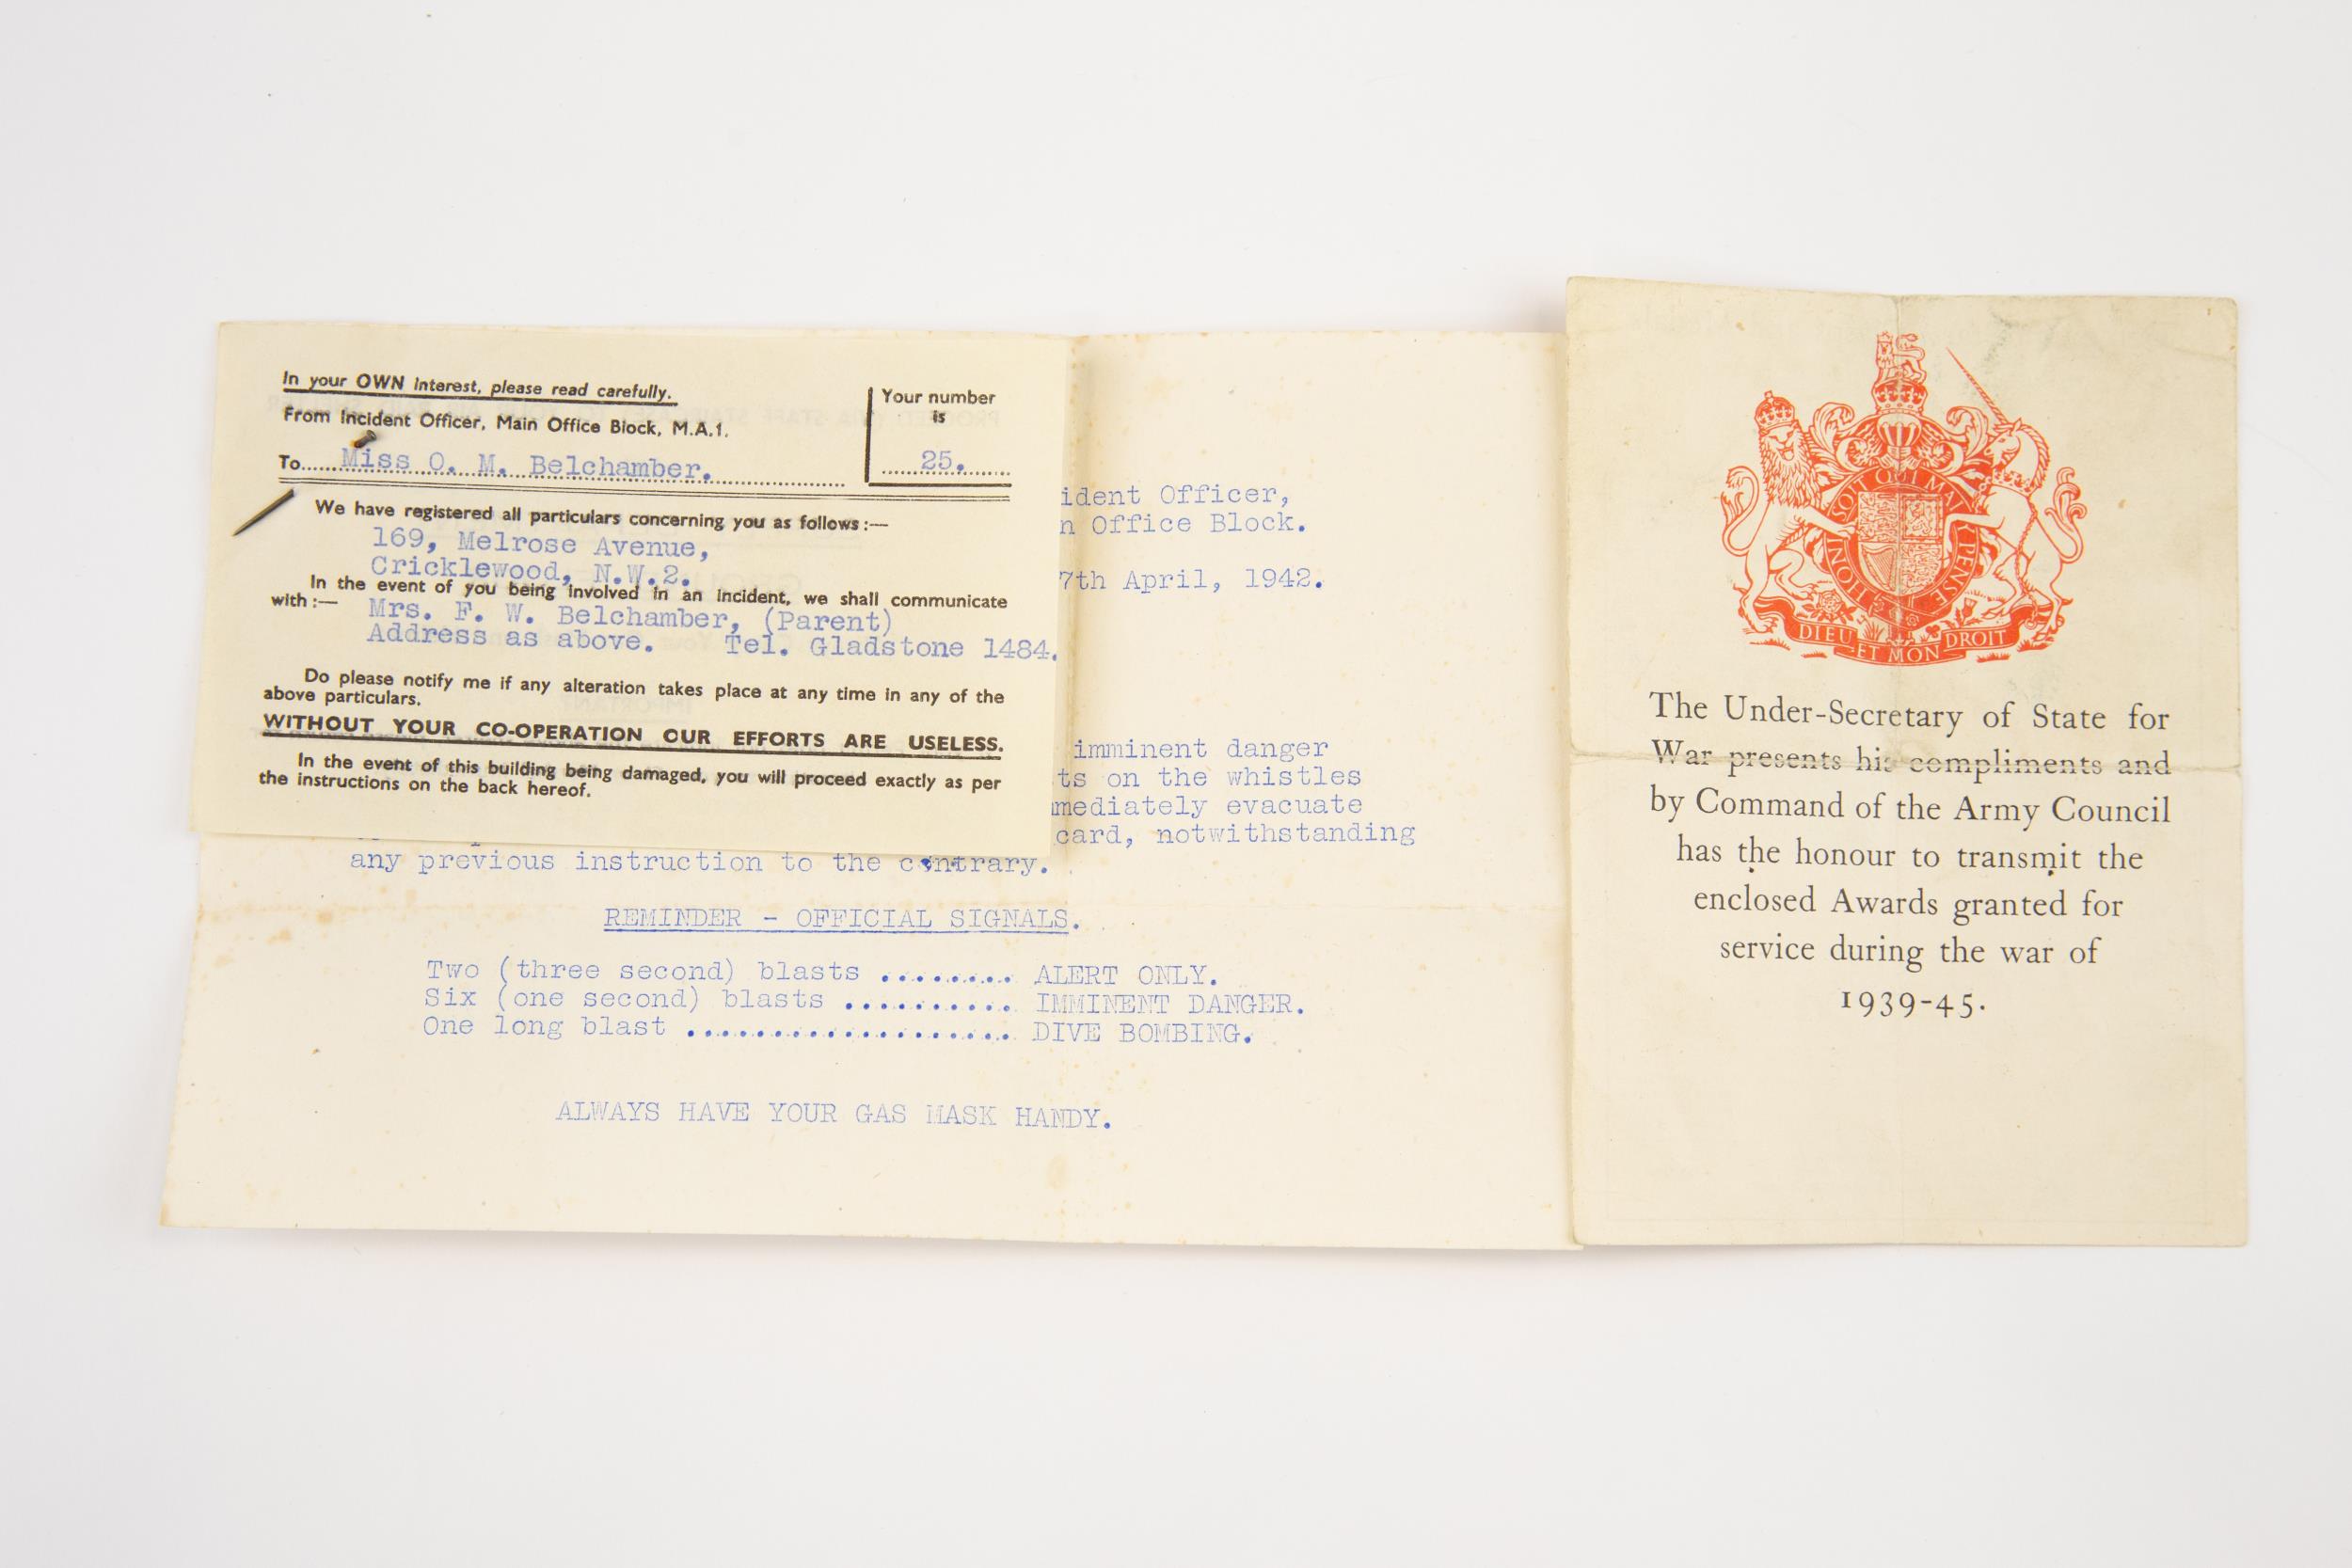 In your OWN interest, please read carefully.
From Incident Officer, Main Office Block, M.A.1.
To Miss O. M. Belchamber.
Your number
is
25.
We have registered all particulars concerning you as follows:—
169, Melrose Avenue,
Cricklewood, N.W.2.
In the event of you being involved in an incident, we shall communicate
with:— Mrs. F. W. Belchamber, (Parent)
Address as above. Tel. Gladstone 1484.
Do please notify me if any alteration takes place at any time in any of the
above particulars.
WITHOUT YOUR CO-OPERATION OUR EFFORTS ARE USELESS.
In the event of this building being damaged, you will proceed exactly as per
the instructions on the back hereof.
ident Officer,
n Office Block.
7th April, 1942.
imminent danger
ts on the whistles
mediately evacuate
card, notwithstanding
any previous instruction to the contrary.
REMINDER - OFFICIAL SIGNALS.
Two (three second) blasts ......... ALERT ONLY.
Six (one second) blasts .......... IMMINENT DANGER.
One long blast ....................... DIVE BOMBING.
ALWAYS HAVE YOUR GAS MASK HANDY.
HONI SOIT QUI MAL Y PENSE
DIEU ET MON DROIT
The Under-Secretary of State for
War presents his compliments and
by Command of the Army Council
has the honour to transmit the
enclosed Awards granted for
service during the war of
1939-45.